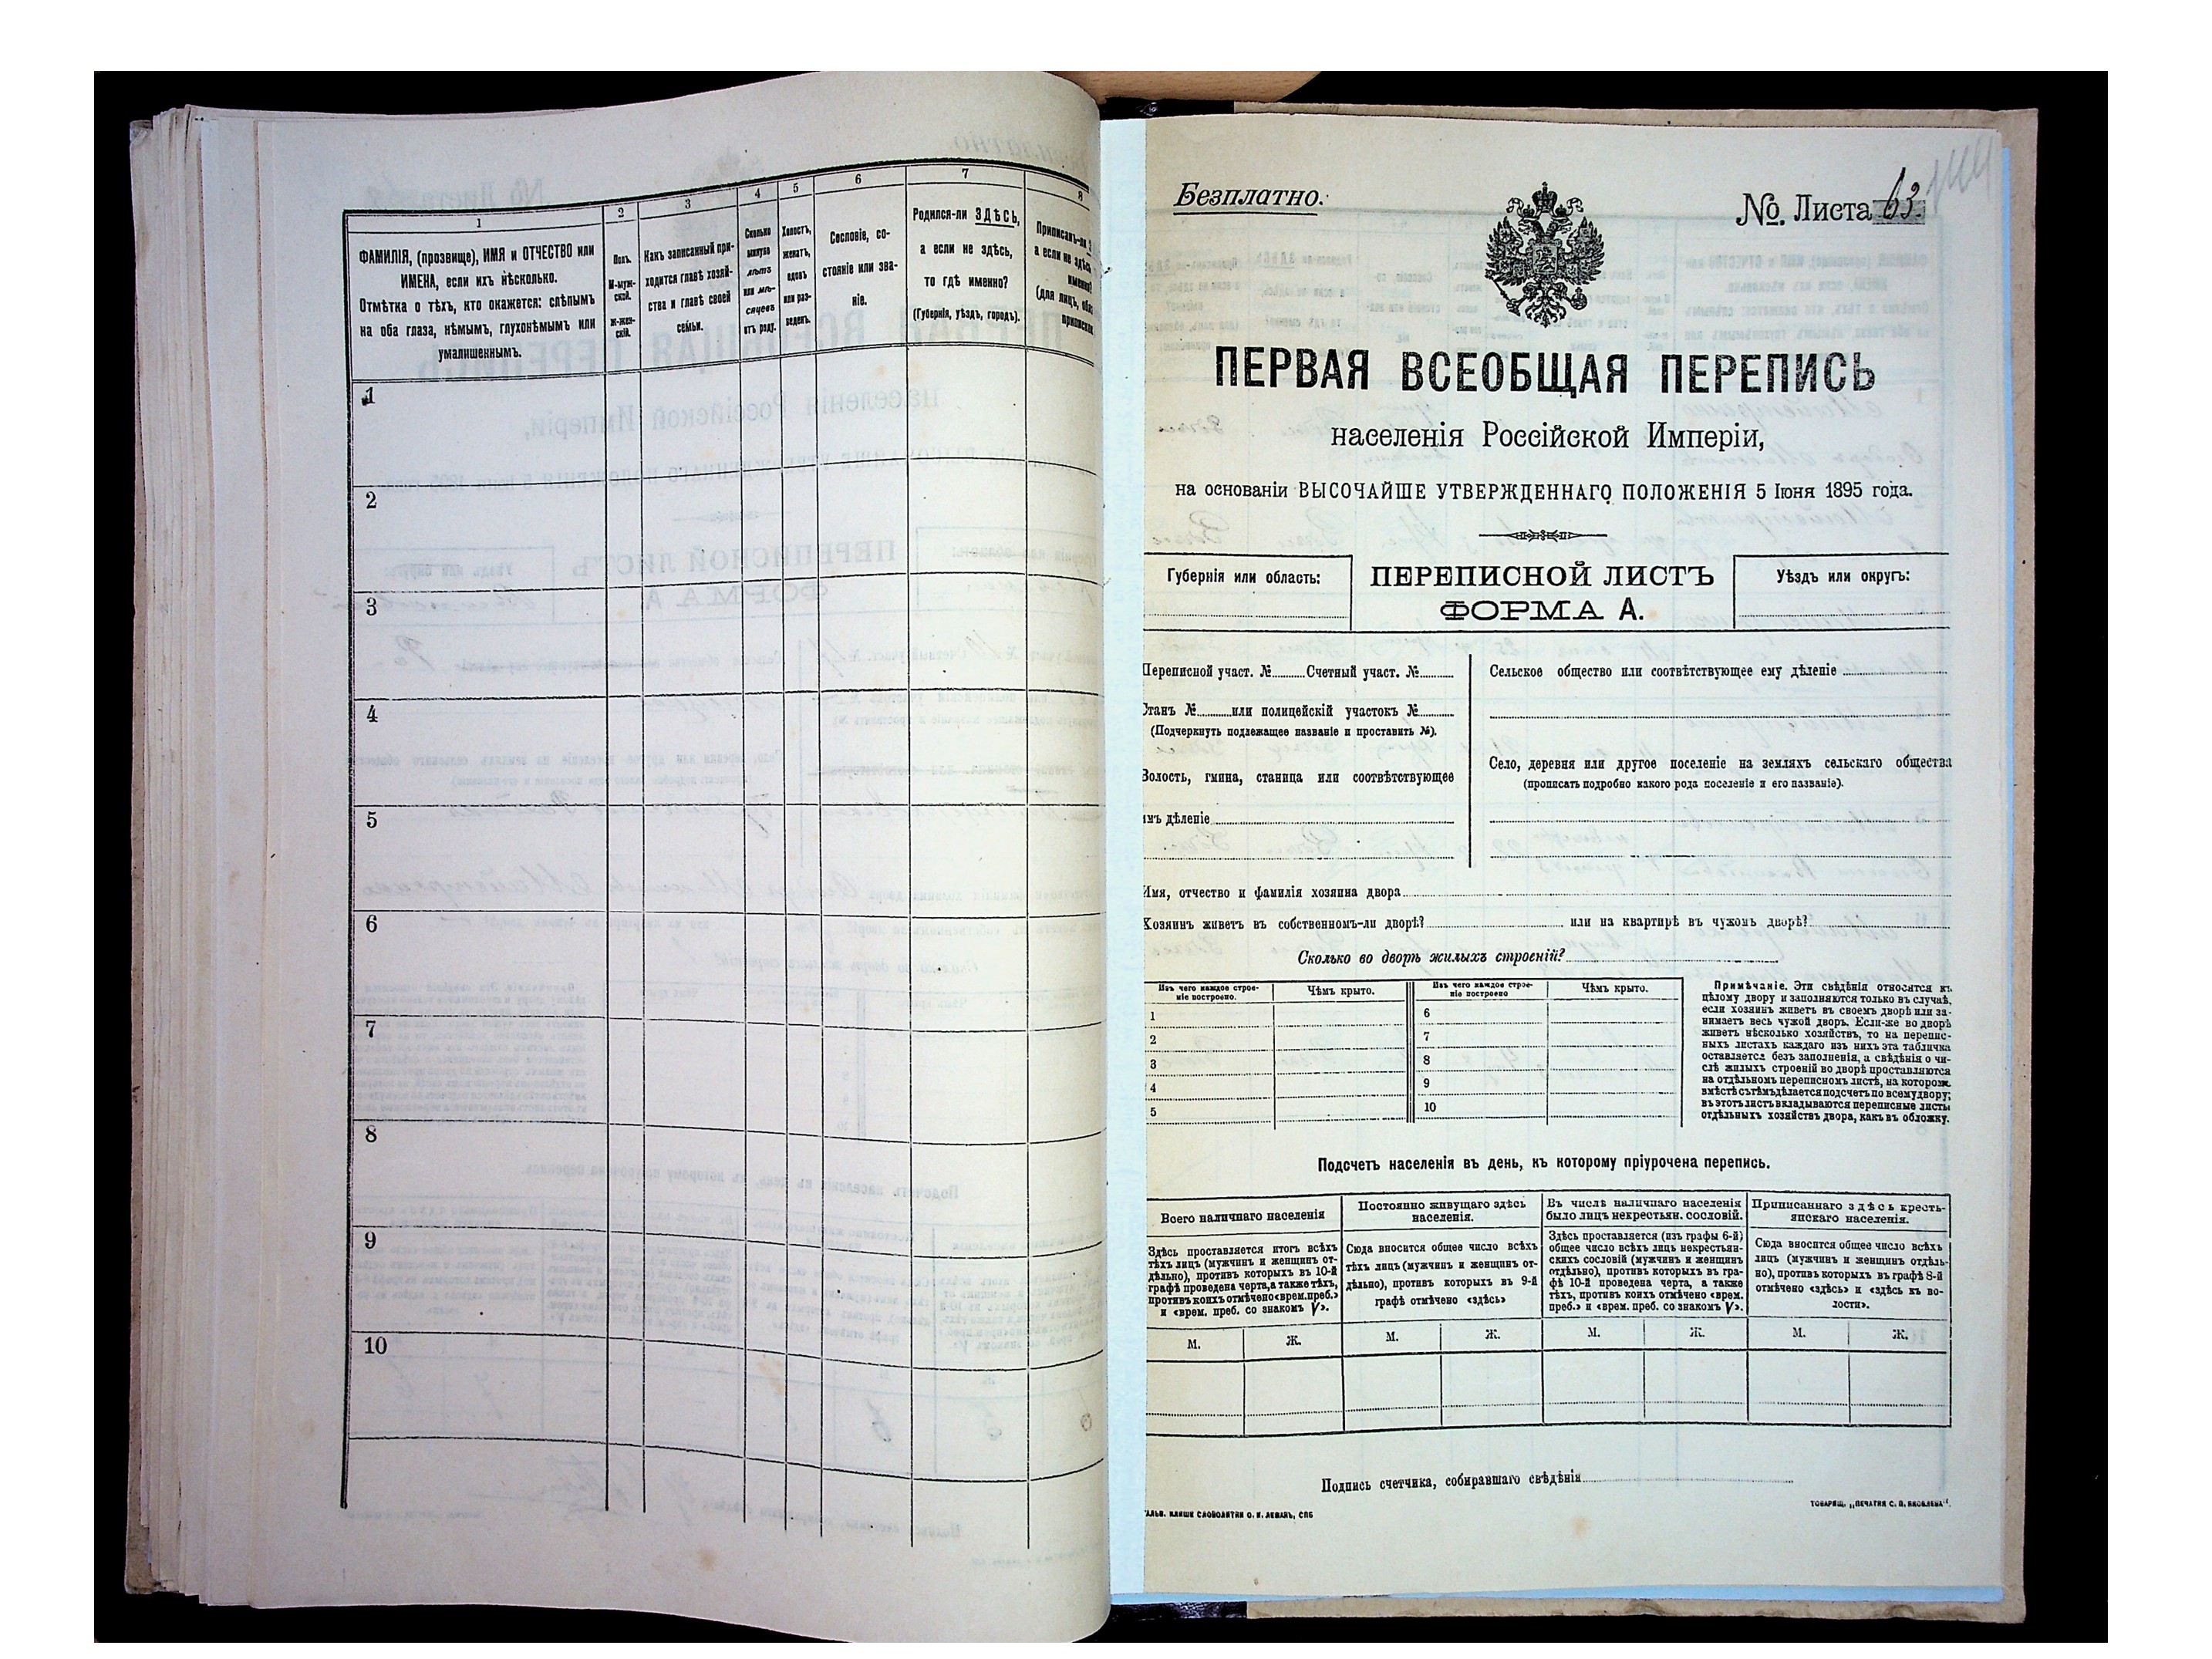 1
2
3
4
5
6
7
8
ФАМИЛІЯ, (прозвище), ИМЯ и ОТЧЕСТВО или
ИМЕНА, если ихъ нѣсколько.
Отмѣтка о тѣхъ, кто окажется: слѣпымъ
на оба глаза, нѣмымъ, глухонѣмымъ или
умалишеннымъ.
Полъ.
М-муж-
ской.
Ж-жен-
скій.
Какъ записанный при-
ходится главѣ хозяй-
ства и главѣ своей
семьи.
Сколько
минуло
лѣтъ
или мѣ-
сяцевъ
отъ роду.
Холостъ,
женатъ,
вдовъ
или раз-
веденъ.
Сословіе, со-
стояніе или зва-
ніе.
Родился-ли ЗДѢСЬ,
а если не здѣсь,
то гдѣ именно?
(Губернія, уѣздъ, городъ).
Приписанъ-ли
а если не здѣсь
именно?
(для лицъ,
1
2
3
4
5
6
7
8
9
10
Безплатно.
№ Листа 63.
144
ПЕРВАЯ ВСЕОБЩАЯ ПЕРЕПИСЬ
населенія Россійской Имперіи,
на основаніи ВЫСОЧАЙШЕ УТВЕРЖДЕННАГО ПОЛОЖЕНІЯ 5 Іюня 1895 года.
Губернія или область:
ПЕРЕПИСНОЙ ЛИСТЪ
ФОРМА А.
Уѣздъ или округъ:
Переписной участ. № Счетный участ. №
Станъ № или полицейскій участокъ №
(Подчеркнуть подлежащее названіе и проставить №).
Волость, гмина, станица или соотвѣтствующее
имъ дѣленіе
Сельское общество или соотвѣтствующее ему дѣленіе
Село, деревня или другое поселеніе на земляхъ сельскаго общества
(прописать подробно какого рода поселеніе и его названіе).
Имя, отчество и фамилія хозяина двора
Хозяинъ живетъ въ собственномъ-ли дворѣ? или на квартирѣ въ чужомъ дворѣ?
Сколько во дворѣ жилыхъ строеній?
Изъ чего каждое строе-
ніе построено.
Чѣмъ крыто.
Изъ чего каждое строе-
ніе построено
Чѣмъ крыто.
1
2
3
4
5
6
7
8
9
10
Примѣчаніе. Эти свѣдѣнія относятся къ
цѣлому двору и заполняются только въ случаѣ,
если хозяинъ живетъ въ своемъ дворѣ или за-
нимаетъ весь чужой дворъ. Если-же во дворѣ
живетъ нѣсколько хозяйствъ, то на перепис-
ныхъ листахъ каждаго изъ нихъ эта табличка
оставляется безъ заполненія, а свѣдѣнія о чи-
слѣ жилыхъ строеній во дворѣ проставляются
на отдѣльномъ переписномъ листѣ, на которомъ
вмѣстѣ съ тѣмъ дѣлается подсчетъ по всему двору;
въ этотъ листъ вкладываются переписные листы
отдѣльныхъ хозяйствъ двора, какъ въ обложку.
Подсчетъ населенія въ день, къ которому пріурочена перепись.
Всего наличнаго населенія
Здѣсь проставляется итогъ всѣхъ
тѣхъ лицъ (мужчинъ и женщинъ от-
дѣльно), противъ которыхъ въ 10-й
графѣ проведена черта, а также тѣхъ,
противъ коихъ отмѣчено «врем. преб.»
и «врем. преб. со знакомъ V».
Постоянно живущаго здѣсь
населенія.
Сюда вносится общее число всѣхъ
тѣхъ лицъ (мужчинъ и женщинъ от-
дѣльно), противъ которыхъ въ 9-й
графѣ отмѣчено «здѣсь»
Въ числѣ наличнаго населенія
было лицъ некрестьян. сословій.
Здѣсь проставляется (изъ графы 6-й)
общее число всѣхъ лицъ некрестьян-
скихъ сословій (мужчинъ и женщинъ
отдѣльно), противъ которыхъ въ гра-
фѣ 10-й проведена черта, а также
тѣхъ, противъ коихъ отмѣчено «врем.
преб.» и «врем. преб. со знакомъ V».
Приписаннаго здѣсь кресть-
янскаго населенія.
Сюда вносится общее число всѣхъ
лицъ (мужчинъ и женщинъ отдѣль-
но), противъ которыхъ въ графѣ 8-й
отмѣчено «здѣсь» и «здѣсь къ во-
лости».
М. Ж. М. Ж. М. Ж. М. Ж.
Подпись счетчика, собиравшаго свѣдѣнія
КЛИШЕ СЛОВОЛИТНИ О. И. ЛЕМАНЪ, СПБ
ТОВАРИЩ. „ПЕЧАТНЯ С. П. ЯКОВЛЕВА“.